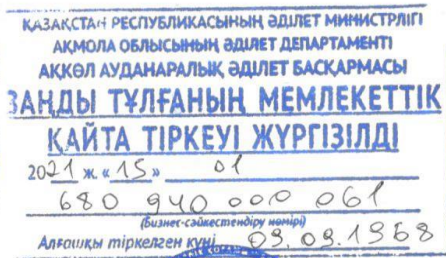 ҚАЗАҚСТАН РЕСПУБЛИКАСЫНЫҢ ӘДІЛЕТ МИНИСТРЛІГІ
АҚМОЛА ОБЛЫСЫНЫҢ ӘДІЛЕТ ДЕПАРТАМЕНТІ
АҚКӨЛ АУДАНАРАЛЫҚ ӘДІЛЕТ БАСҚАРМАСЫ
ЗАҢДЫ ТҰЛҒАНЫҢ МЕМЛЕКЕТТІК
ҚАЙТА ТІРКЕУІ ЖҮРГІЗІЛДІ
2021 ж. «15» 01
680 940 000 061
(Бизнес-сәйкестендіру нөмірі)
Алғашқы тіркелген күні 09.09.1968